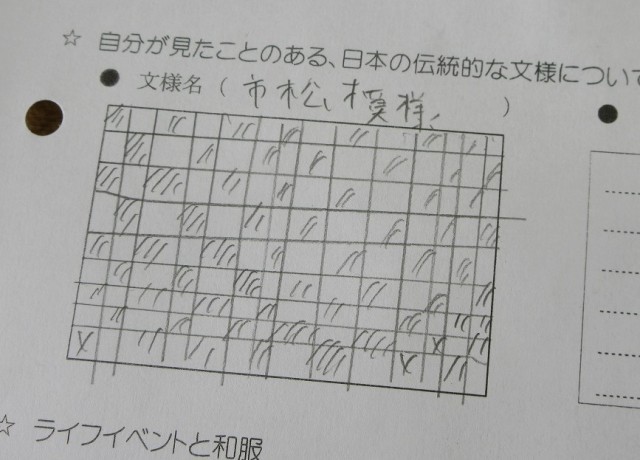 ☆ 自分が見たことのある、日本の伝統的な文様につい
● 文様名 ( 市松模様 )
☆ ライフイベントと和服